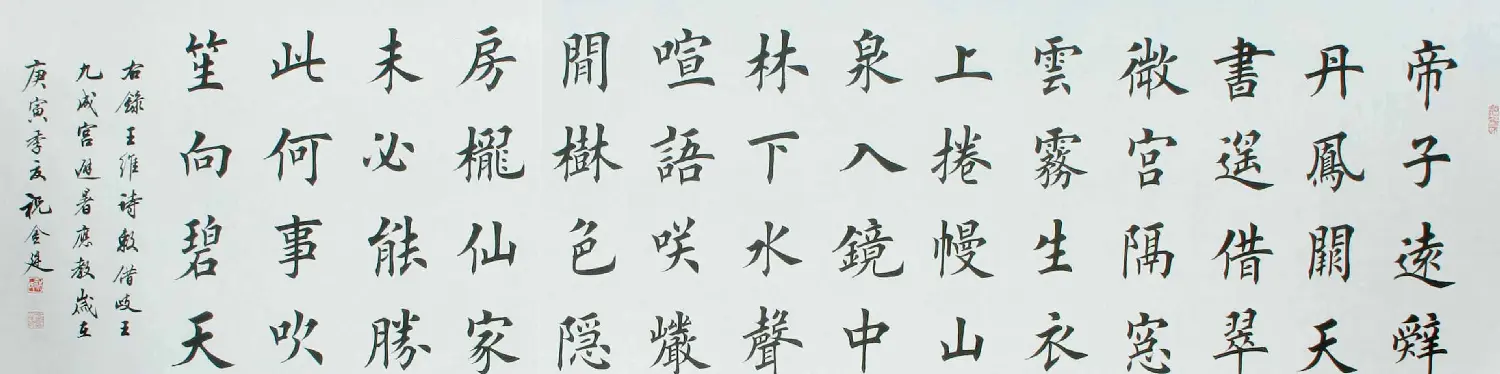 帝子遠辤
丹鳳闕天
書遥借翠
微宫隔窓
雲霧生衣
上捲幔山
泉入鏡中
林下水聲
喧語咲巗
間樹色隠
房櫳仙家
未必能勝
此何事吹
笙向碧天
右錄王維诗敕借岐王
九成宫避暑應教歲在
庚寅季夏祝金廷